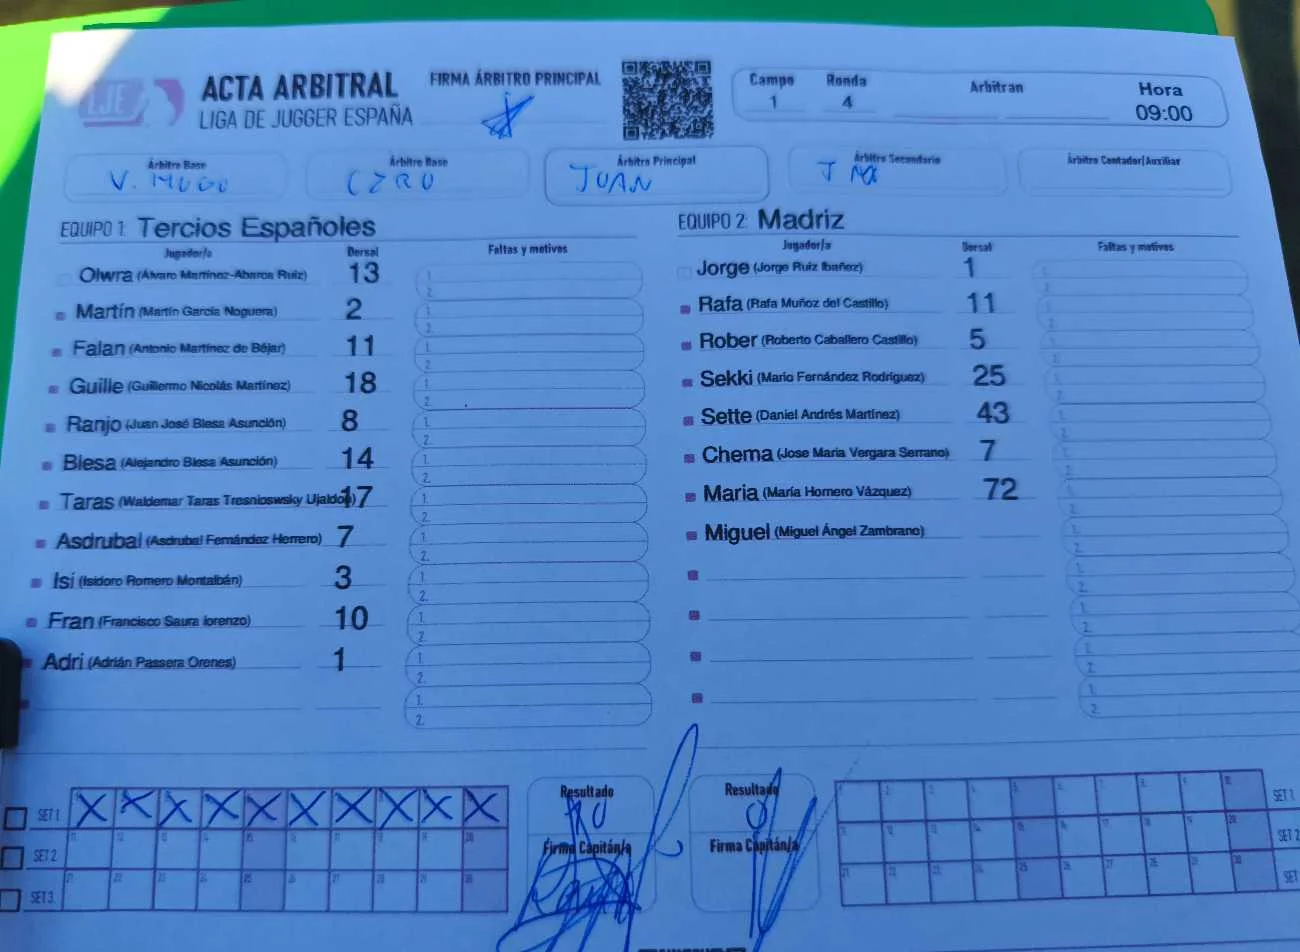 LJE
ACTA ARBITRAL
LIGA DE JUGGER ESPAÑA
FIRMA ÁRBITRO PRINCIPAL
Campo Ronda Arbitran Hora
1 4 09:00
Árbitro Base Árbitro Base Árbitro Principal Árbitro Secundario Árbitro Contador/Auxiliar
V. HUGO JUAN
EQUIPO 1: Tercios Españoles
Jugador/a Dorsal Faltas y motivos
Olwra (Álvaro Martínez-Abarca Ruiz) 13
Martín (Martín García Noguera) 2
Falan (Antonio Martínez de Béjar) 11
Guille (Guillermo Nicolás Martínez) 18
Ranjo (Juan José Blesa Asunción) 8
Blesa (Alejandro Blesa Asunción) 14
Taras (Waldemar Taras Tresniowsky Ujaldón) 17
Asdrubal (Asdrubal Fernández Herrero) 7
Isi (Isidoro Romero Montalbán) 3
Fran (Francisco Saura lorenzo) 10
Adri (Adrián Passera Orenes) 1
EQUIPO 2: Madriz
Jugador/a Dorsal Faltas y motivos
Jorge (Jorge Ruiz Ibañez) 1
Rafa (Rafa Muñoz del Castillo) 11
Rober (Roberto Caballero Castillo) 5
Sekki (Mario Fernández Rodríguez) 25
Sette (Daniel Andrés Martínez) 43
Chema (Jose Maria Vergara Serrano) 7
Maria (María Hornero Vázquez) 72
Miguel (Miguel Ángel Zambrano)
SET 1 X X X X X X X X X X
SET 2
SET 3
Resultado
10
Firma Capitán/a
Resultado
0
Firma Capitán/a
SET 1
SET 2
SET